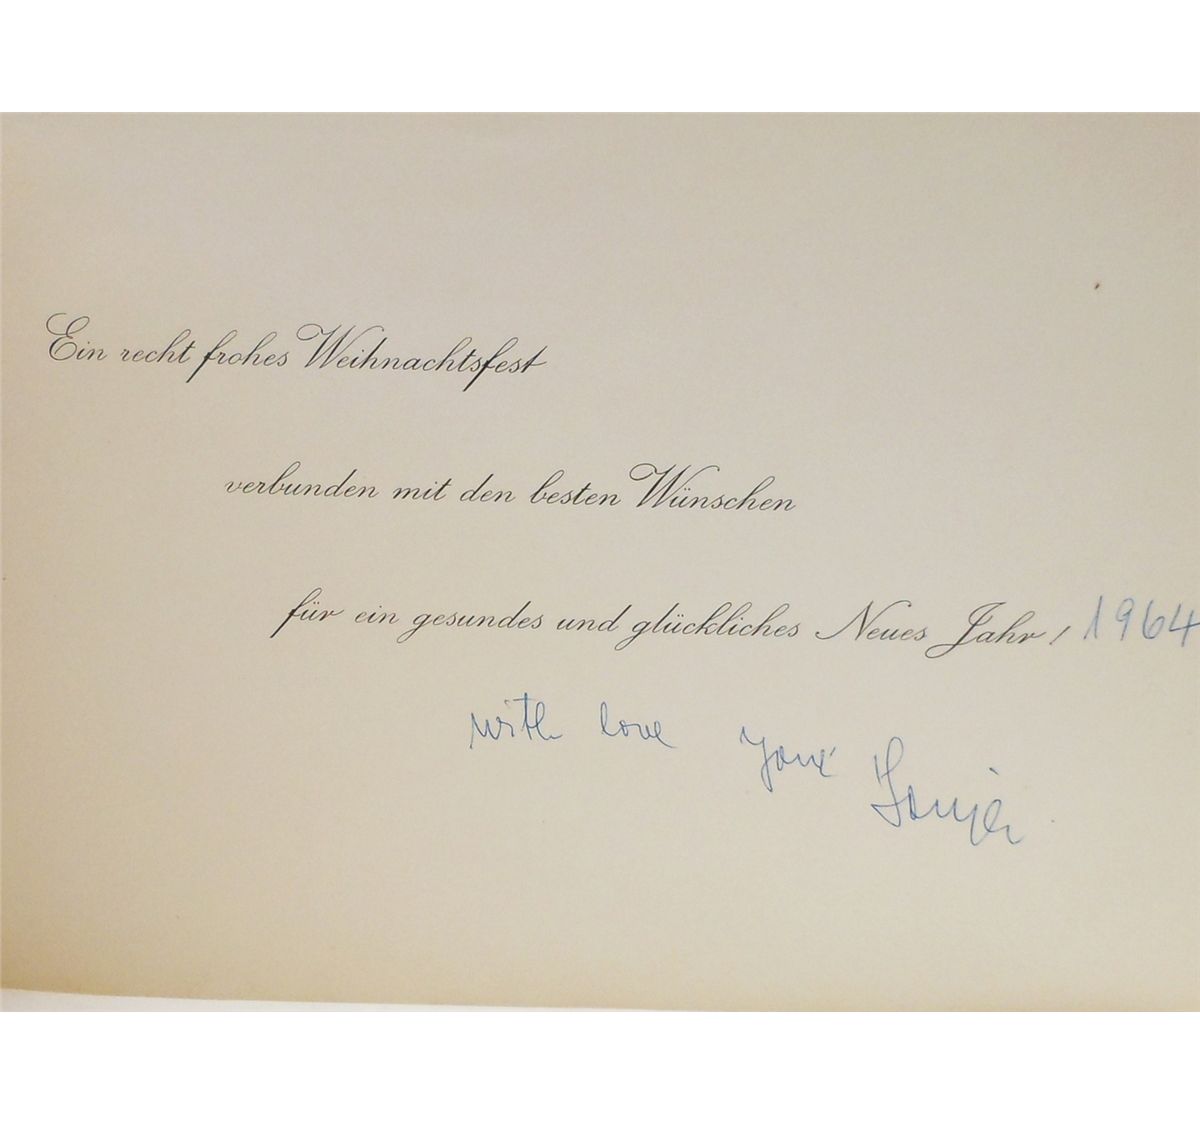 Ein recht frohes Weihnachtsfest
verbunden mit den besten Wünschen
für ein gesundes und glückliches Neues Jahr! 1964
with love your Sonja